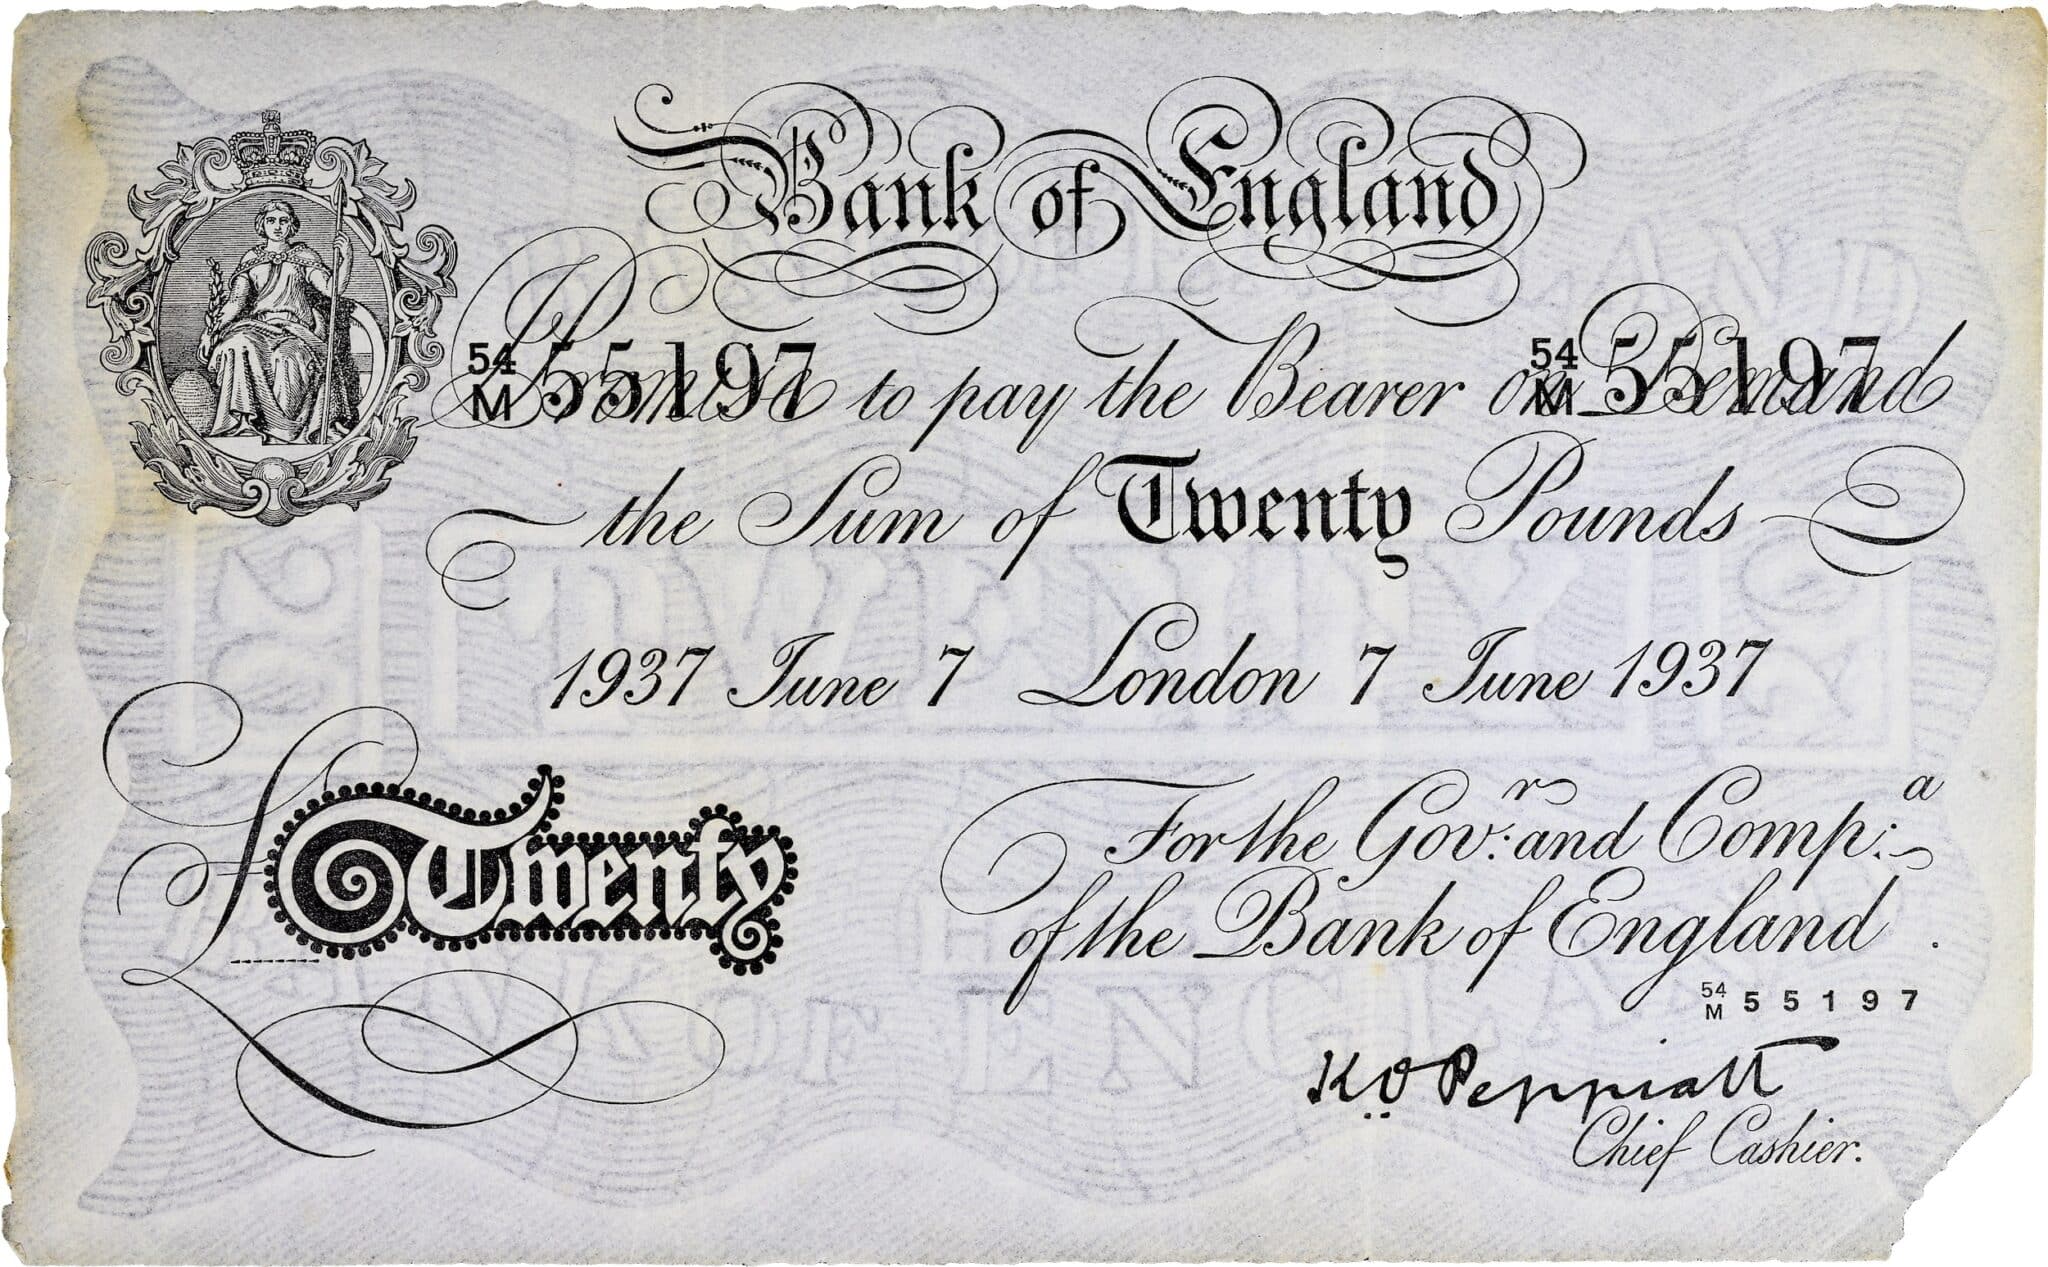 Bank of England
I Promise to pay the Bearer on Demand
54 M 55197 54 M 55197
the Sum of Twenty Pounds
1937 June 7 London 7 June 1937
£Twenty
For the Gov.r and Comp.a
of the Bank of England.
54 M 55197
K O Peppiatt
Chief Cashier.
BANK OF ENGLAND
TWENTY
BANK OF ENGLAND